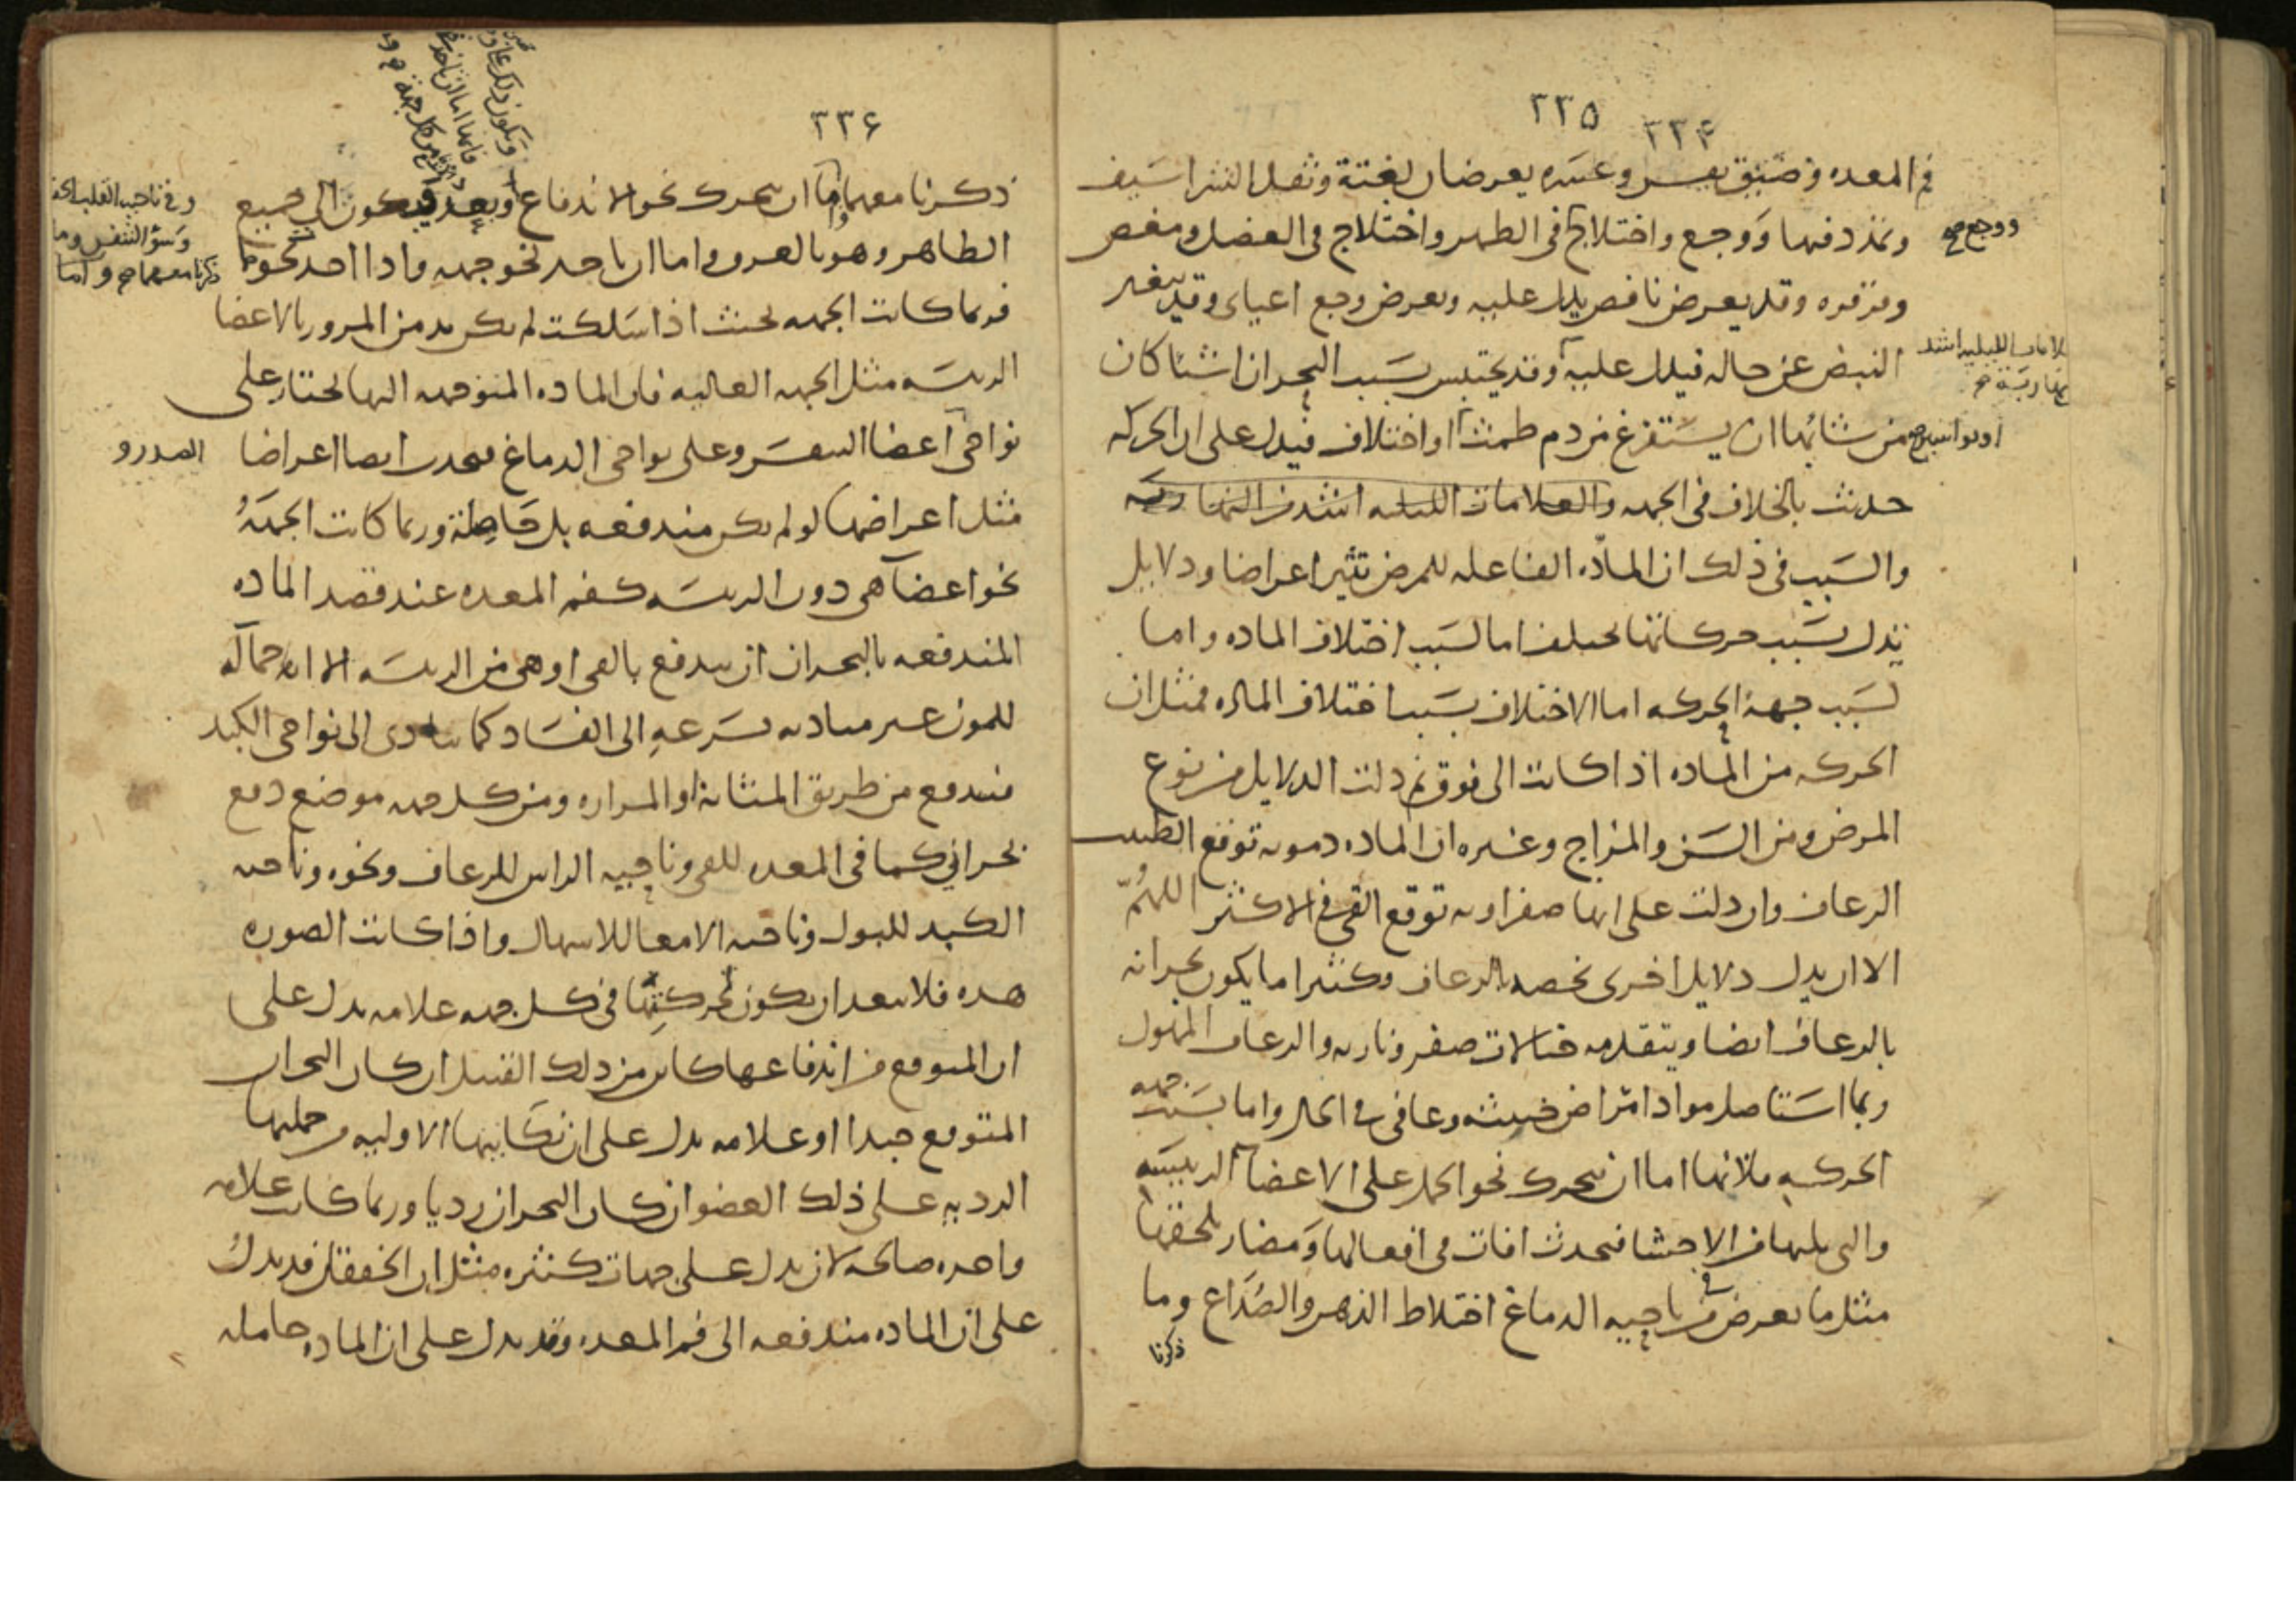 ٢٣٥ ٢٣٤
فم المعده وضيق نفس وعسره يعرضان بغتة وثقل الشراسيف
وتمدد فيها ووجع واختلاج في الظهر واختلاج في العضل ومغص
ووجع صح
وقرقره وقد يعرض نافض يدل عليه ويعرض وجع اعياي وقد يتغير
النبض عن حاله فيدل عليه وقد يحتبس بسبب البحران اشيا كان
من شانها ان يستفرغ من دم طمث او اختلاف فيدل على ان الحركه
او بواسير صح
حدثت بالخلاف في الجهه والعلامات الليليه اشد من النهاريه
والسبب في ذلك ان الماده الفاعله للمرض تثير اعراضا ودلايل
تدل بسبب حركاتها تختلف اما لسبب اختلاف الماده واما
لسبب جهة الحركه اما الاختلاف بسبب اختلاف الماده فمثل ان
الحركه من الماده اذا كانت الى فوق ثم دلت الدلايل من نوع
المرض ومن السن والمزاج وغيره ان الماده دمويه توقع الطبيب
الرعاف وان دلت على انها صفراويه توقع القي في الاكثر اللهم
الا ان يدل دلايل اخرى تخصه بالرعاف وكثيرا ما يكون بحرانه
بالرعاف ايضا ويتقدمه خيالات صفر وناريه والرعاف المهول
ربما استاصل مواد امراض خبيثه وعافى في الحال واما بسبب جهه
الحركه فلانها اما ان تتحرك نحو الحمل على الاعضا الرييسه
والتي يليها من الاحشا فتحدث افات في افعالها ومضار تلحقها
مثل ما يعرض في ناحيه الدماغ اختلاط الذهن والصداع وما
ذكرنا
٢٣٦
ذكرنا معهما واما ان تتحرك نحو الاندفاع
الظاهر وهو بالعروق واما ان ياخذ نحو جهه واذا اخذ نحوها
فربما كانت الجهه بحيث اذا سلكت لم يكن بد من المرور بالاعضا
الرييسه مثل الجهه العاليه فان الماده المتوجهه اليها تجتاز على
نواحي اعضا النفس وعلى نواحي الدماغ فيحدث ايضا اعراضا
الصدر و
مثل اعراضها لو لم يكن مندفعه بل حاصلة وربما كانت الجهة
نحو اعضا هي دون الرييسه كفم المعده عند قصد الماده
المندفعه بالبحران ان يندفع بالقي او هي من الرييسه الا انه حماله
للمون غير مباديه بسرعه الى الفساد كما يتادى الى نواحي الكبد
فيندفع من طريق المثانة او المراره ومن كل جهه موضع دفع
بحراني كما في المعده للقي وناحيه الراس للرعاف ونحوه وناحيه
الكبد للبول وناحيه الامعا للاسهال واذا كانت الصوره
هذه فلا يبعد ان يكون لحركتها في كل جهه علامه يدل على
ان المتوقع من اندفاعها كاين من ذلك القبيل ان كان البحران
المتوقع جيدا او علامه يدل على ان نكايتها الاوليه وحملتها
الرديه على ذلك العضو ان كان البحران رديا وربما كانت علامه
واحده صالحه لان يدل على جهات كثيره مثل ان الخفقان قد يدل
على ان الماده مندفعه الى فم المعده وقد يدل على ان الماده حامله